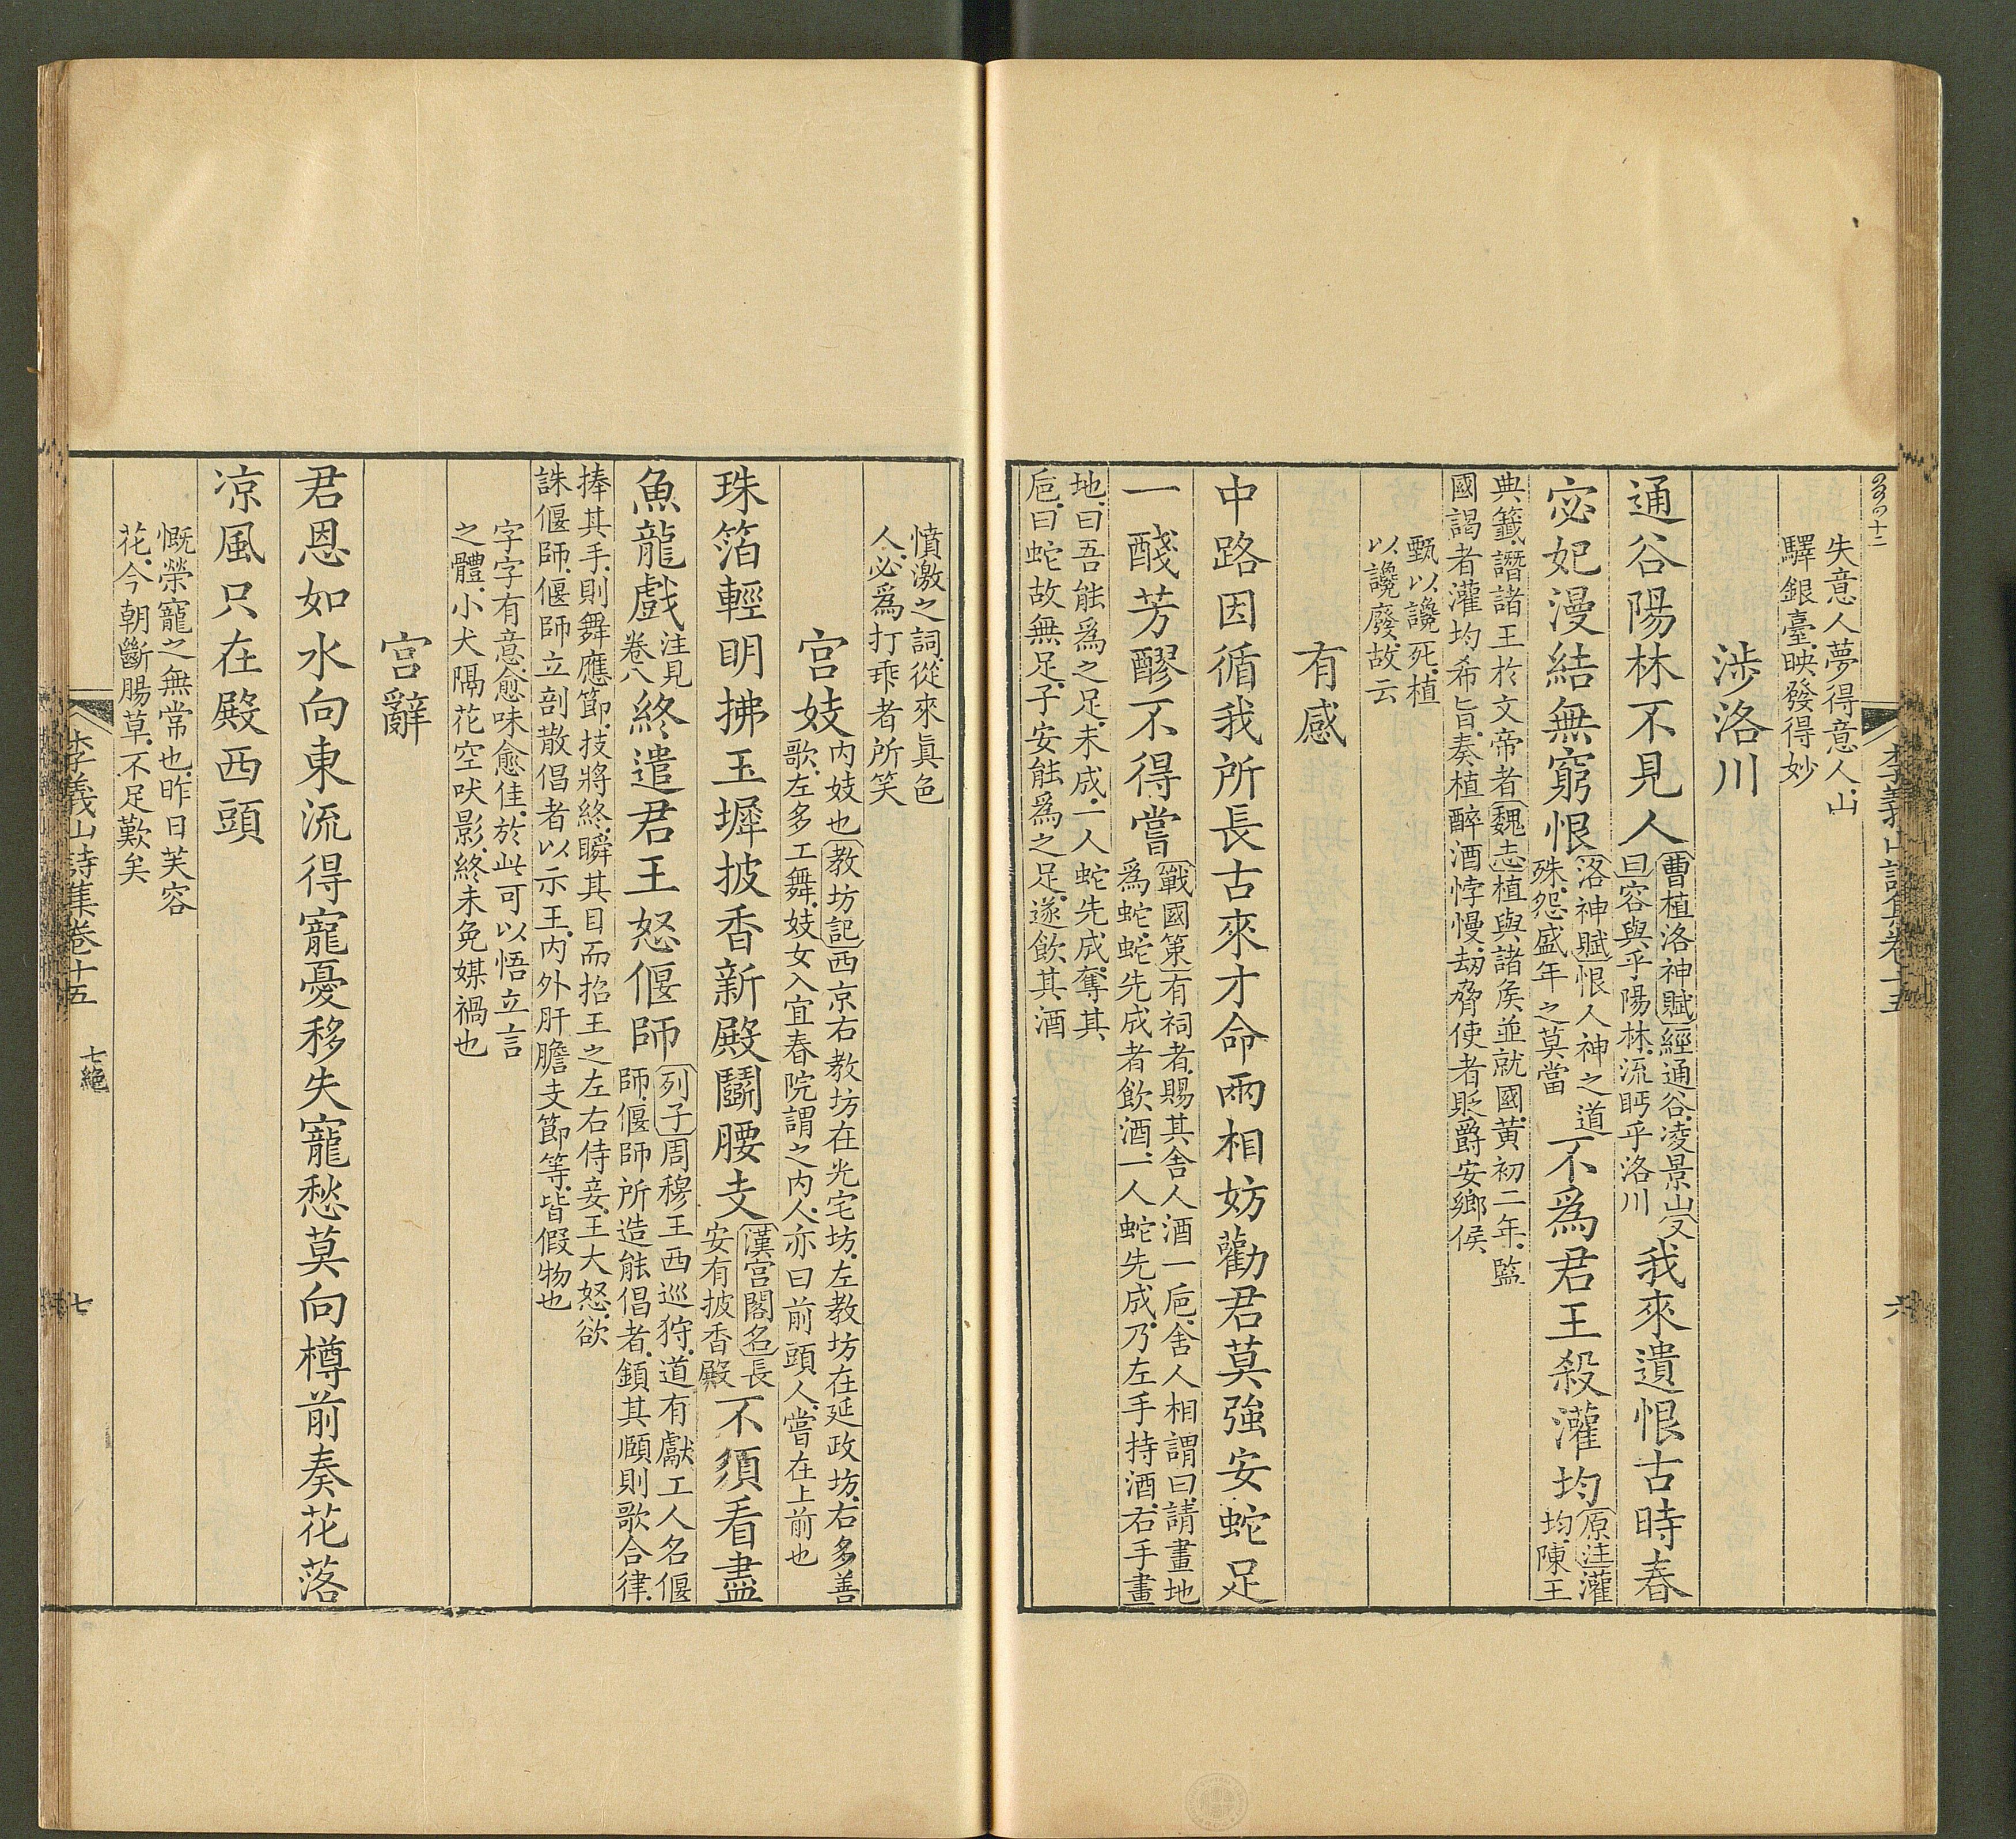 李義山詩集卷十五
六
失意人夢得意人山
驛銀臺映發得妙
涉洛川
通谷陽林不見人曹植洛神賦經通谷凌景山又
曰容與乎陽林流眄乎洛川我來遺恨古時春
宓妃漫結無窮恨洛神賦恨人神之道
殊怨盛年之莫當不爲君王殺灌均原注灌
均陳王
典籤譖諸王於文帝者魏志植與諸侯並就國黃初二年監
國謁者灌均希旨奏植醉酒悖慢劫脅使者貶爵安鄉侯
甄以讒死植
以讒廢故云
有感
中路因循我所長古來才命兩相妨勸君莫強安蛇足
一醆芳醪不得嘗戰國策有祠者賜其舍人酒一巵舍人相謂曰請畫地
爲蛇蛇先成者飲酒一人蛇先成乃左手持酒右手畫
地曰吾能爲之足未成一人蛇先成奪其
巵曰蛇故無足子安能爲之足遂飲其酒
憤激之詞從來眞色
人必爲打乖者所笑
宮妓內妓也教坊記西京右教坊在光宅坊左教坊在延政坊右多善
歌左多工舞妓女入宜春院謂之內人亦曰前頭人嘗在上前也
珠箔輕明拂玉墀披香新殿鬬腰支漢宮閣名長
安有披香殿不須看盡
魚龍戲注見
卷八終遣君王怒偃師列子周穆王西巡狩道有獻工人名偃
師偃師所造能倡者顉其頤則歌合律
捧其手則舞應節技將終瞬其目而招王之左右侍妾王大怒欲
誅偃師偃師立剖散倡者以示王內外肝膽支節等皆假物也
字字有意愈味愈佳於此可以悟立言
之體小犬隔花空吠影終未免媒禍也
宮辭
君恩如水向東流得寵憂移失寵愁莫向樽前奏花落
凉風只在殿西頭
慨榮寵之無常也昨日芙容
花今朝斷腸草不足歎矣
李義山詩集卷十五
七絕
七